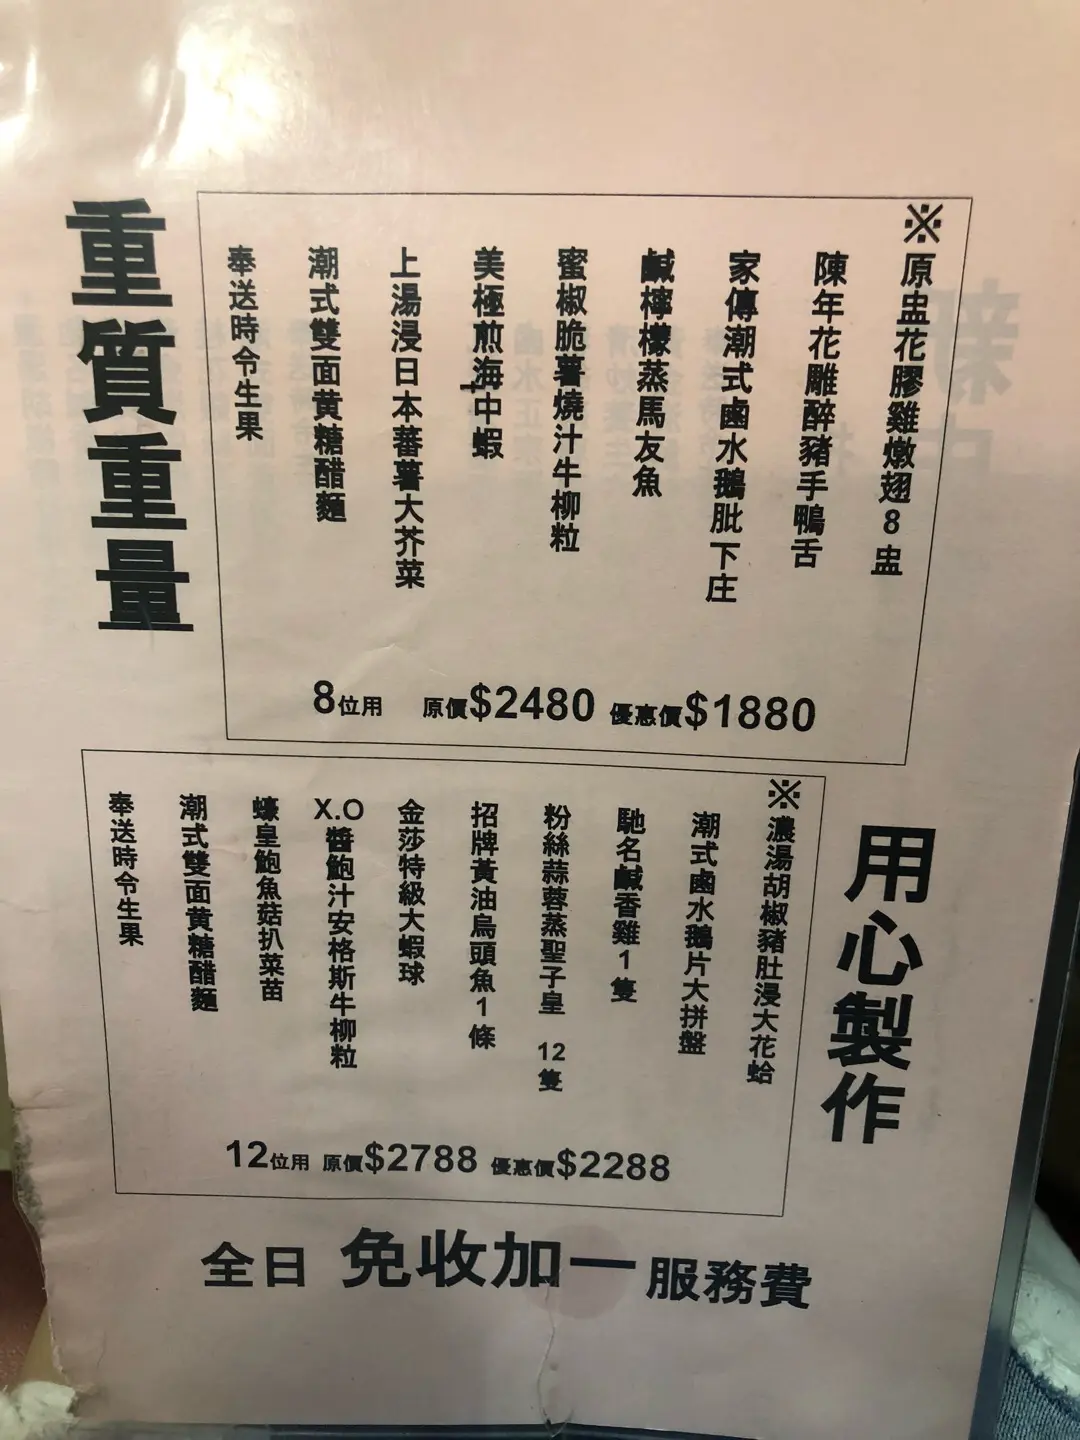 重質重量
※原盅花膠雞燉翅8盅
陳年花雕醉豬手鴨舌
家傳潮式鹵水鵝肶下庄
鹹檸檬蒸馬友魚
蜜椒脆薯燒汁牛柳粒
美極煎海中蝦
上湯浸日本蕃薯大芥菜
潮式雙面黄糖醋麵
奉送時令生果
8位用 原價$2480 優惠價$1880
用心製作
※濃湯胡椒豬肚浸大花蛤
潮式鹵水鵝片大拼盤
馳名鹹香雞1隻
粉絲蒜蓉蒸聖子皇 12隻
招牌黃油烏頭魚1條
金莎特級大蝦球
X.O醬鮑汁安格斯牛柳粒
蠔皇鮑魚菇扒菜苗
潮式雙面黄糖醋麵
奉送時令生果
12位用 原價$2788 優惠價$2288
全日 免收加一服務費